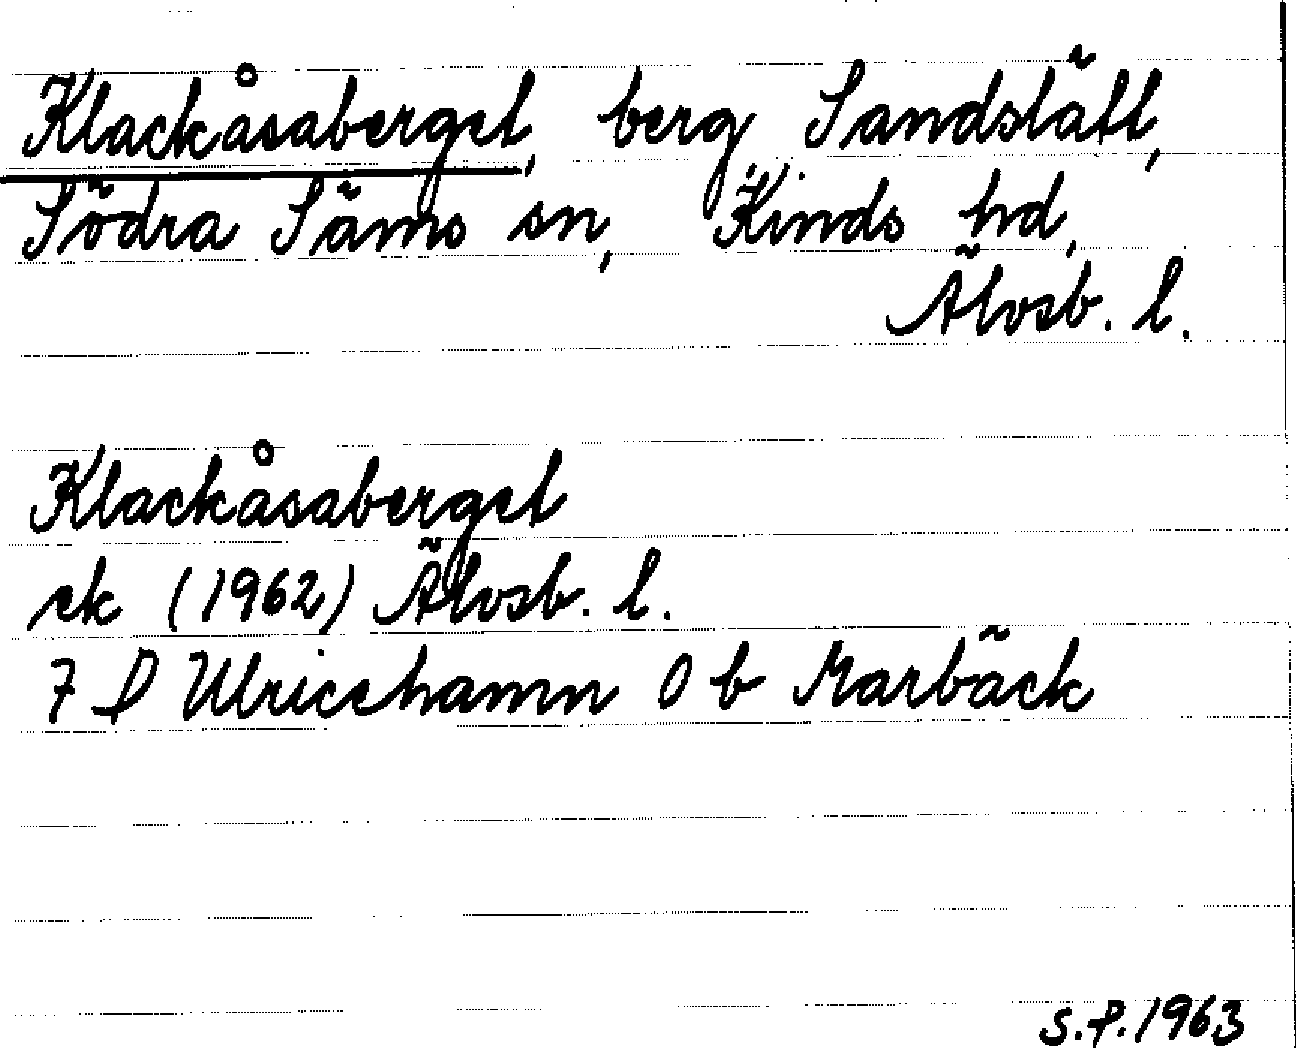 Klackåsaberget, berg Sandslätt,
Södra Säms sn, Kinds hd,
Älvsb. l.
Klackåsaberget
ek (1962) Älvsb. l.
7 D Ulricehamn 0 b Marbäck
S.F. 1963